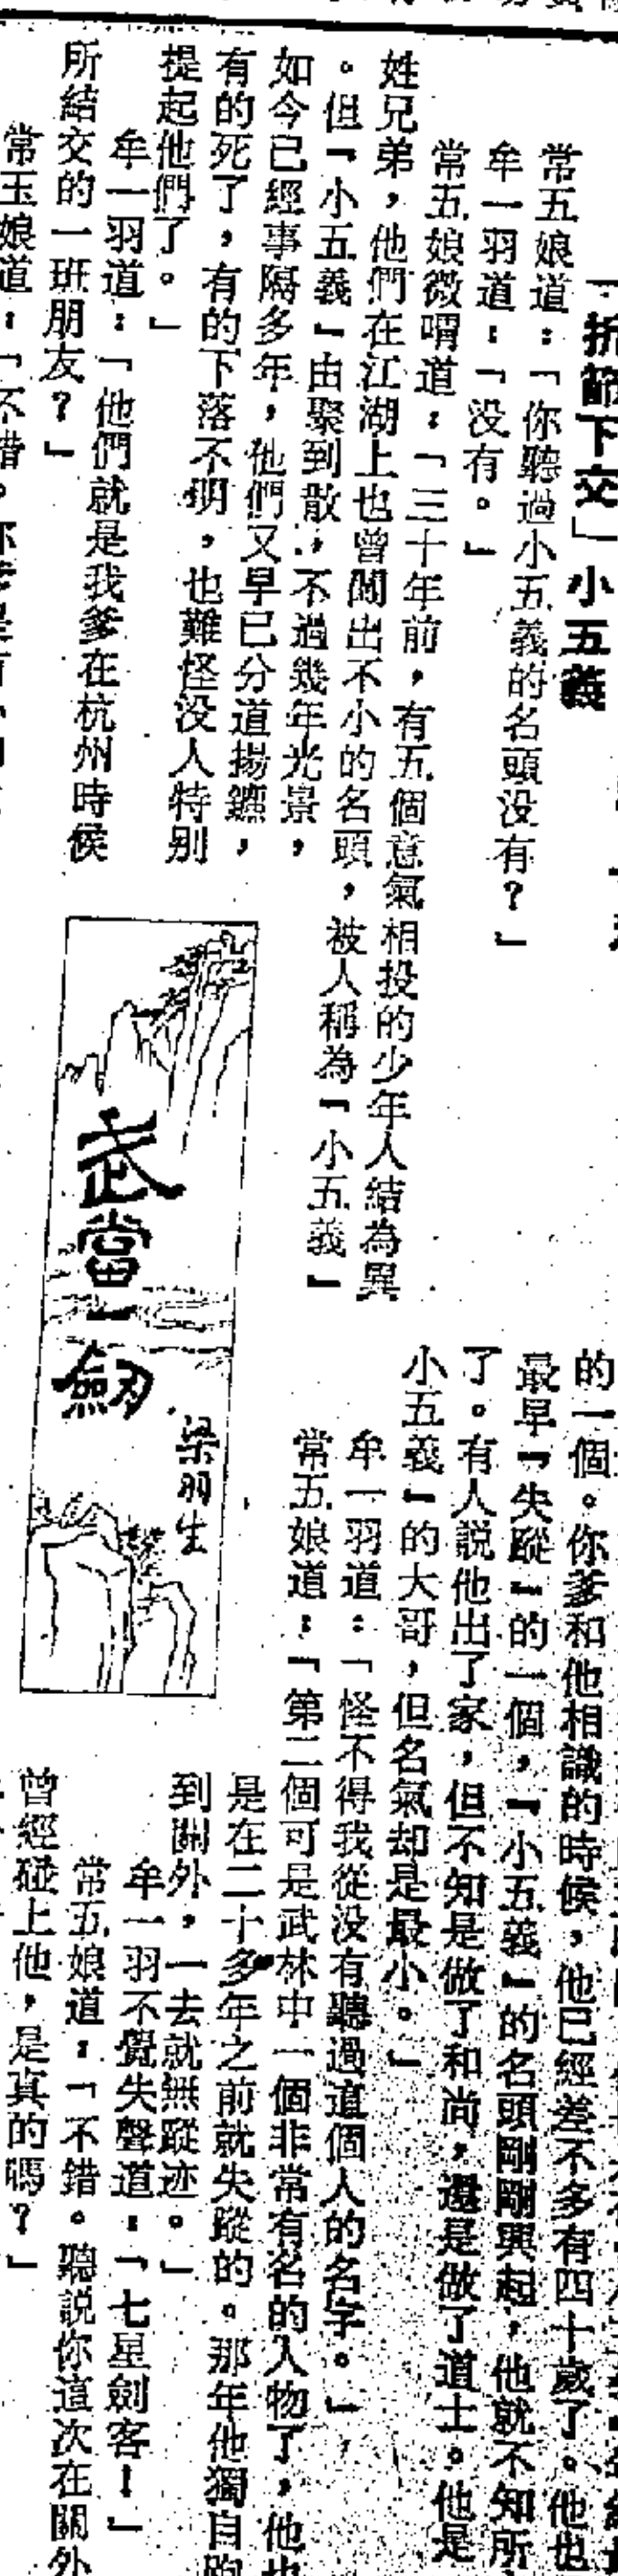 「折節下交」小五義
常五娘道：「你聽過小五義的名頭没有？」
牟一羽道：「没有。」
常五娘微喟道：「三十年前，有五個意氣相投的少年人結為異
姓兄弟，他們在江湖上也曾闖出不小的名頭，被人稱為「小五義」
。但「小五義」由聚到散，不過幾年光景，
如今已經事隔多年，他們又早已分道揚鑣，
有的死了，有的下落不明，也難怪没人特别
提起他們了。」
牟一羽道：「他們就是我爹在杭州時候
所結交的一班朋友？」
常五娘道：「不錯。你爹是有「
武當一劍
梁羽生
的一個。你爹和他相識的時候，他已經差不多有四十歲了。他也
最早「失蹤」的一個，「小五義」的名頭剛剛興起，他就不知所
了。有人説他出了家，但不知是做了和尚，還是做了道士。他是
小五義」的大哥，但名氣却是最小。」
牟一羽道：「怪不得我從没有聽過這個人的名字。」
常五娘道：「第二個可是武林中一個非常有名的人物了，他也
是在二十多年之前就失蹤的。那年他獨自跑
到關外，一去就無蹤迹。」
牟一羽不覺失聲道：「七星劍客！」
常五娘道：「不錯。聽説你這次在關外
曾經碰上他，是真的嗎？」